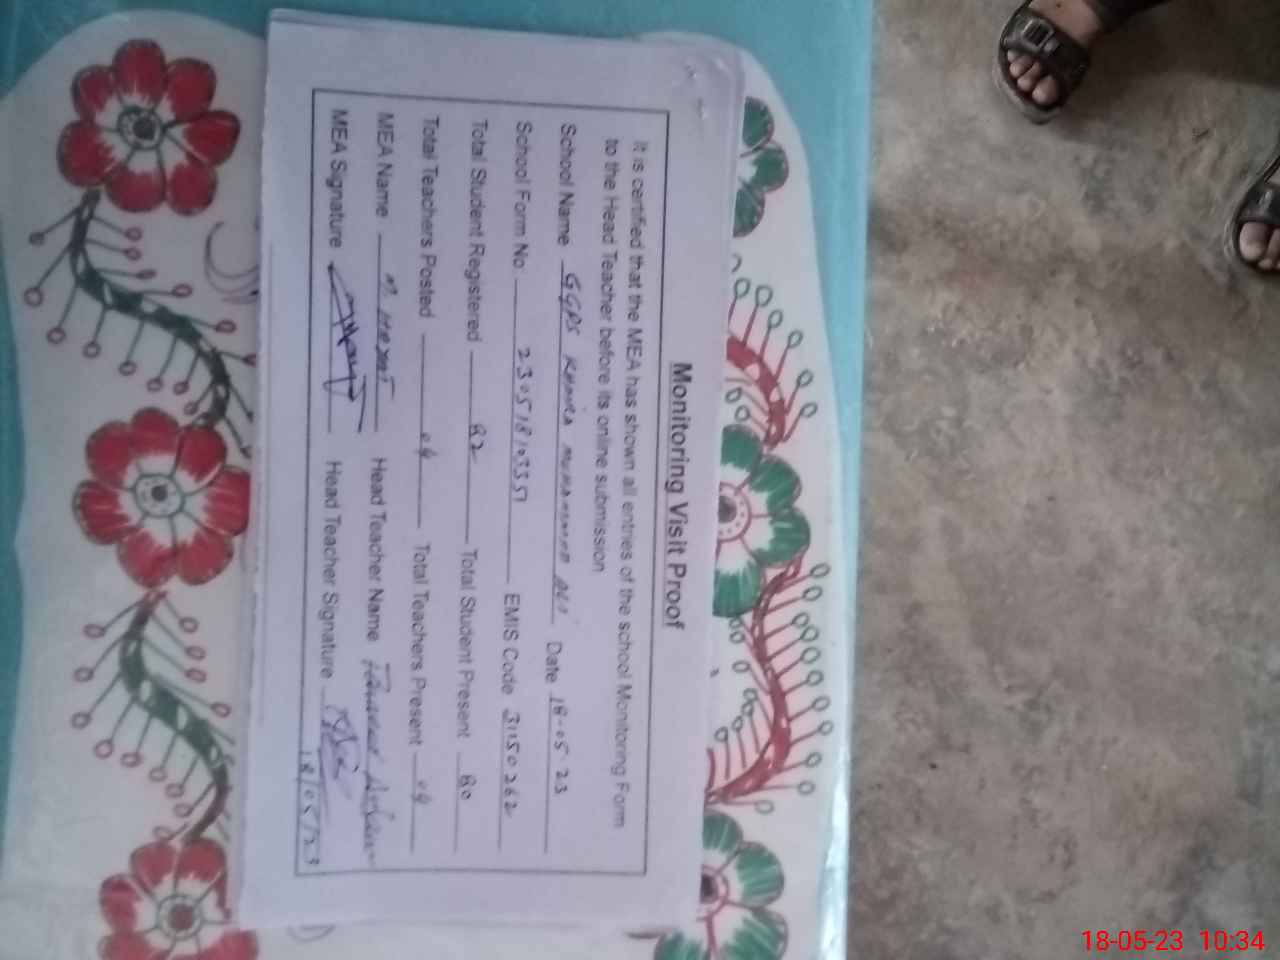 Monitoring Visit Proof
It is certified that the MEA has shown all entries of the school Monitoring Form
to the Head Teacher before its online submission
School Name GGPS Muhammad Ali Date 18-05-23
School Form No 230518103351 EMIS Code 31150262
Total Student Registered 82 Total Student Present 80
Total Teachers Posted 04 Total Teachers Present 04
MEA Name Head Teacher Name
MEA Signature Head Teacher Signature
18/05/23
18-05-23 10:34